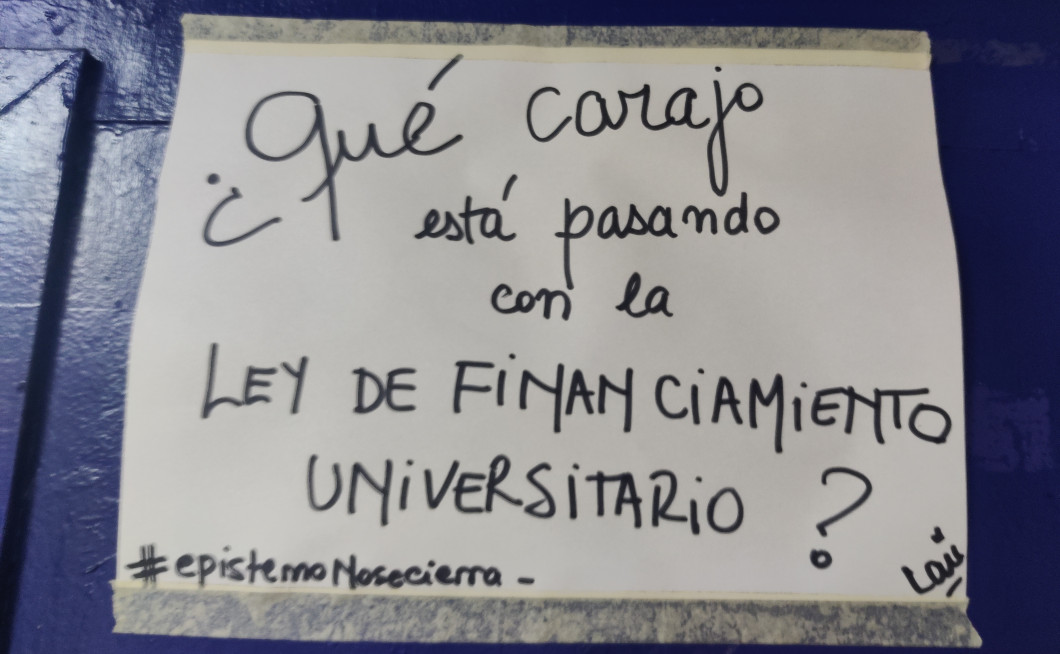 ¿Qué carajo
está pasando
con la
LEY DE FiNANCiAMiENTO
UNiVERSiTARiO ?
#epistemoNosecierra -